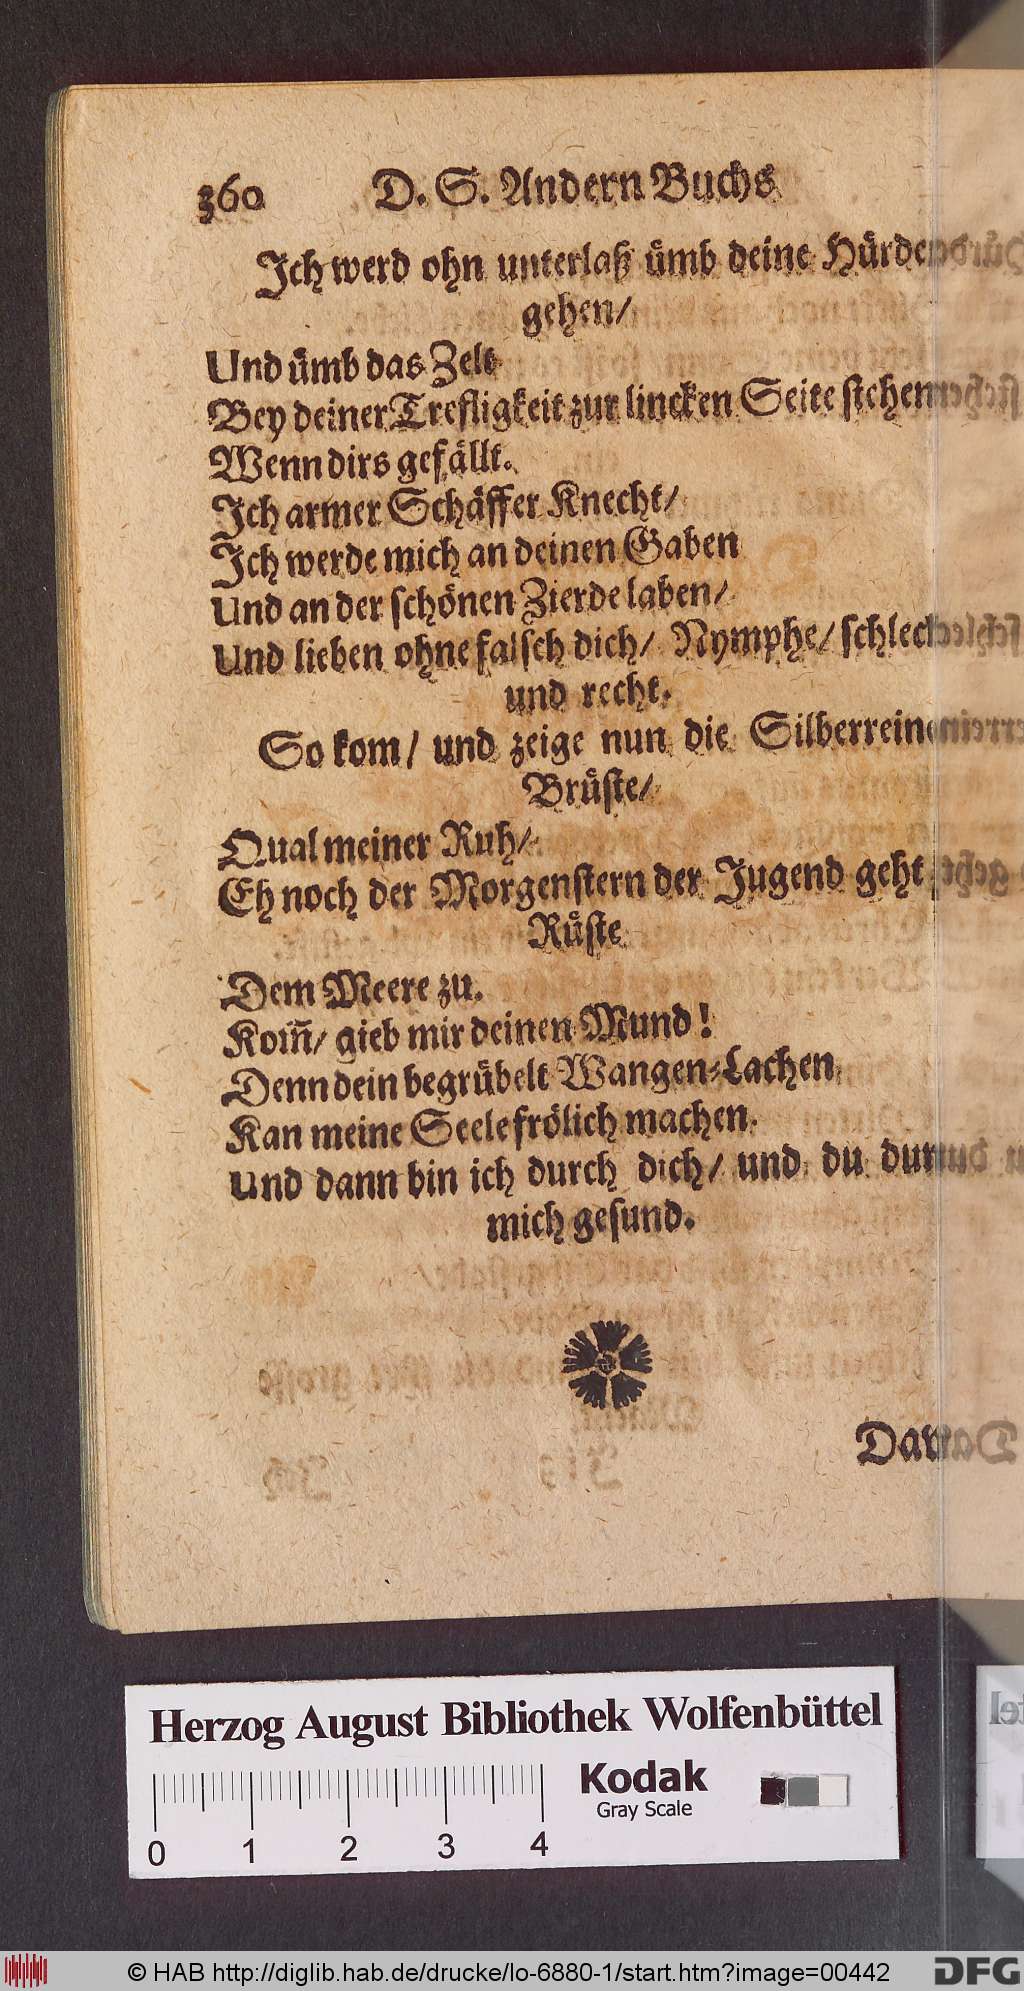 360 D. S. Andern Buchs
Ich werd ohn unterlaß ümb deine Hürden
gehen/
Und ümb das Zelt
Bey deiner Trefligkeit zur lincken Seite stehen
Wenn dirs gefällt.
Ich armer Schäffer Knecht/
Ich werde mich an deinen Gaben
Und an der schönen Zierde laben/
Und lieben ohne falsch dich/ Nymphe/ schlecht
und recht.
So kom/ und zeige nun die Silberreinen
Brüste/
Qual meiner Ruh/
Eh noch der Morgenstern der Jugend geht
Rüste
Dem Meere zu.
Kom̅/ gieb mir deinen Mund!
Denn dein begrübelt Wangen-Lachen
Kan meine Seele frölich machen.
Und dann bin ich durch dich/ und du durch
mich gesund.
Herzog August Bibliothek Wolfenbüttel
Kodak
Gray Scale
0 1 2 3 4
© HAB http://diglib.hab.de/drucke/lo-6880-1/start.htm?image=00442
DFG